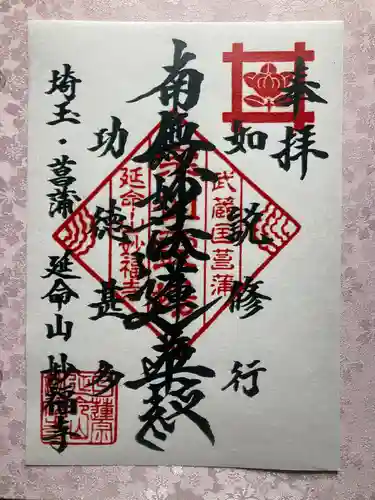 奉拝
如説修行
南無妙法蓮華経
功徳甚多
埼玉・菖蒲 延命山 妙福寺
武蔵国菖蒲
延命山妙福寺